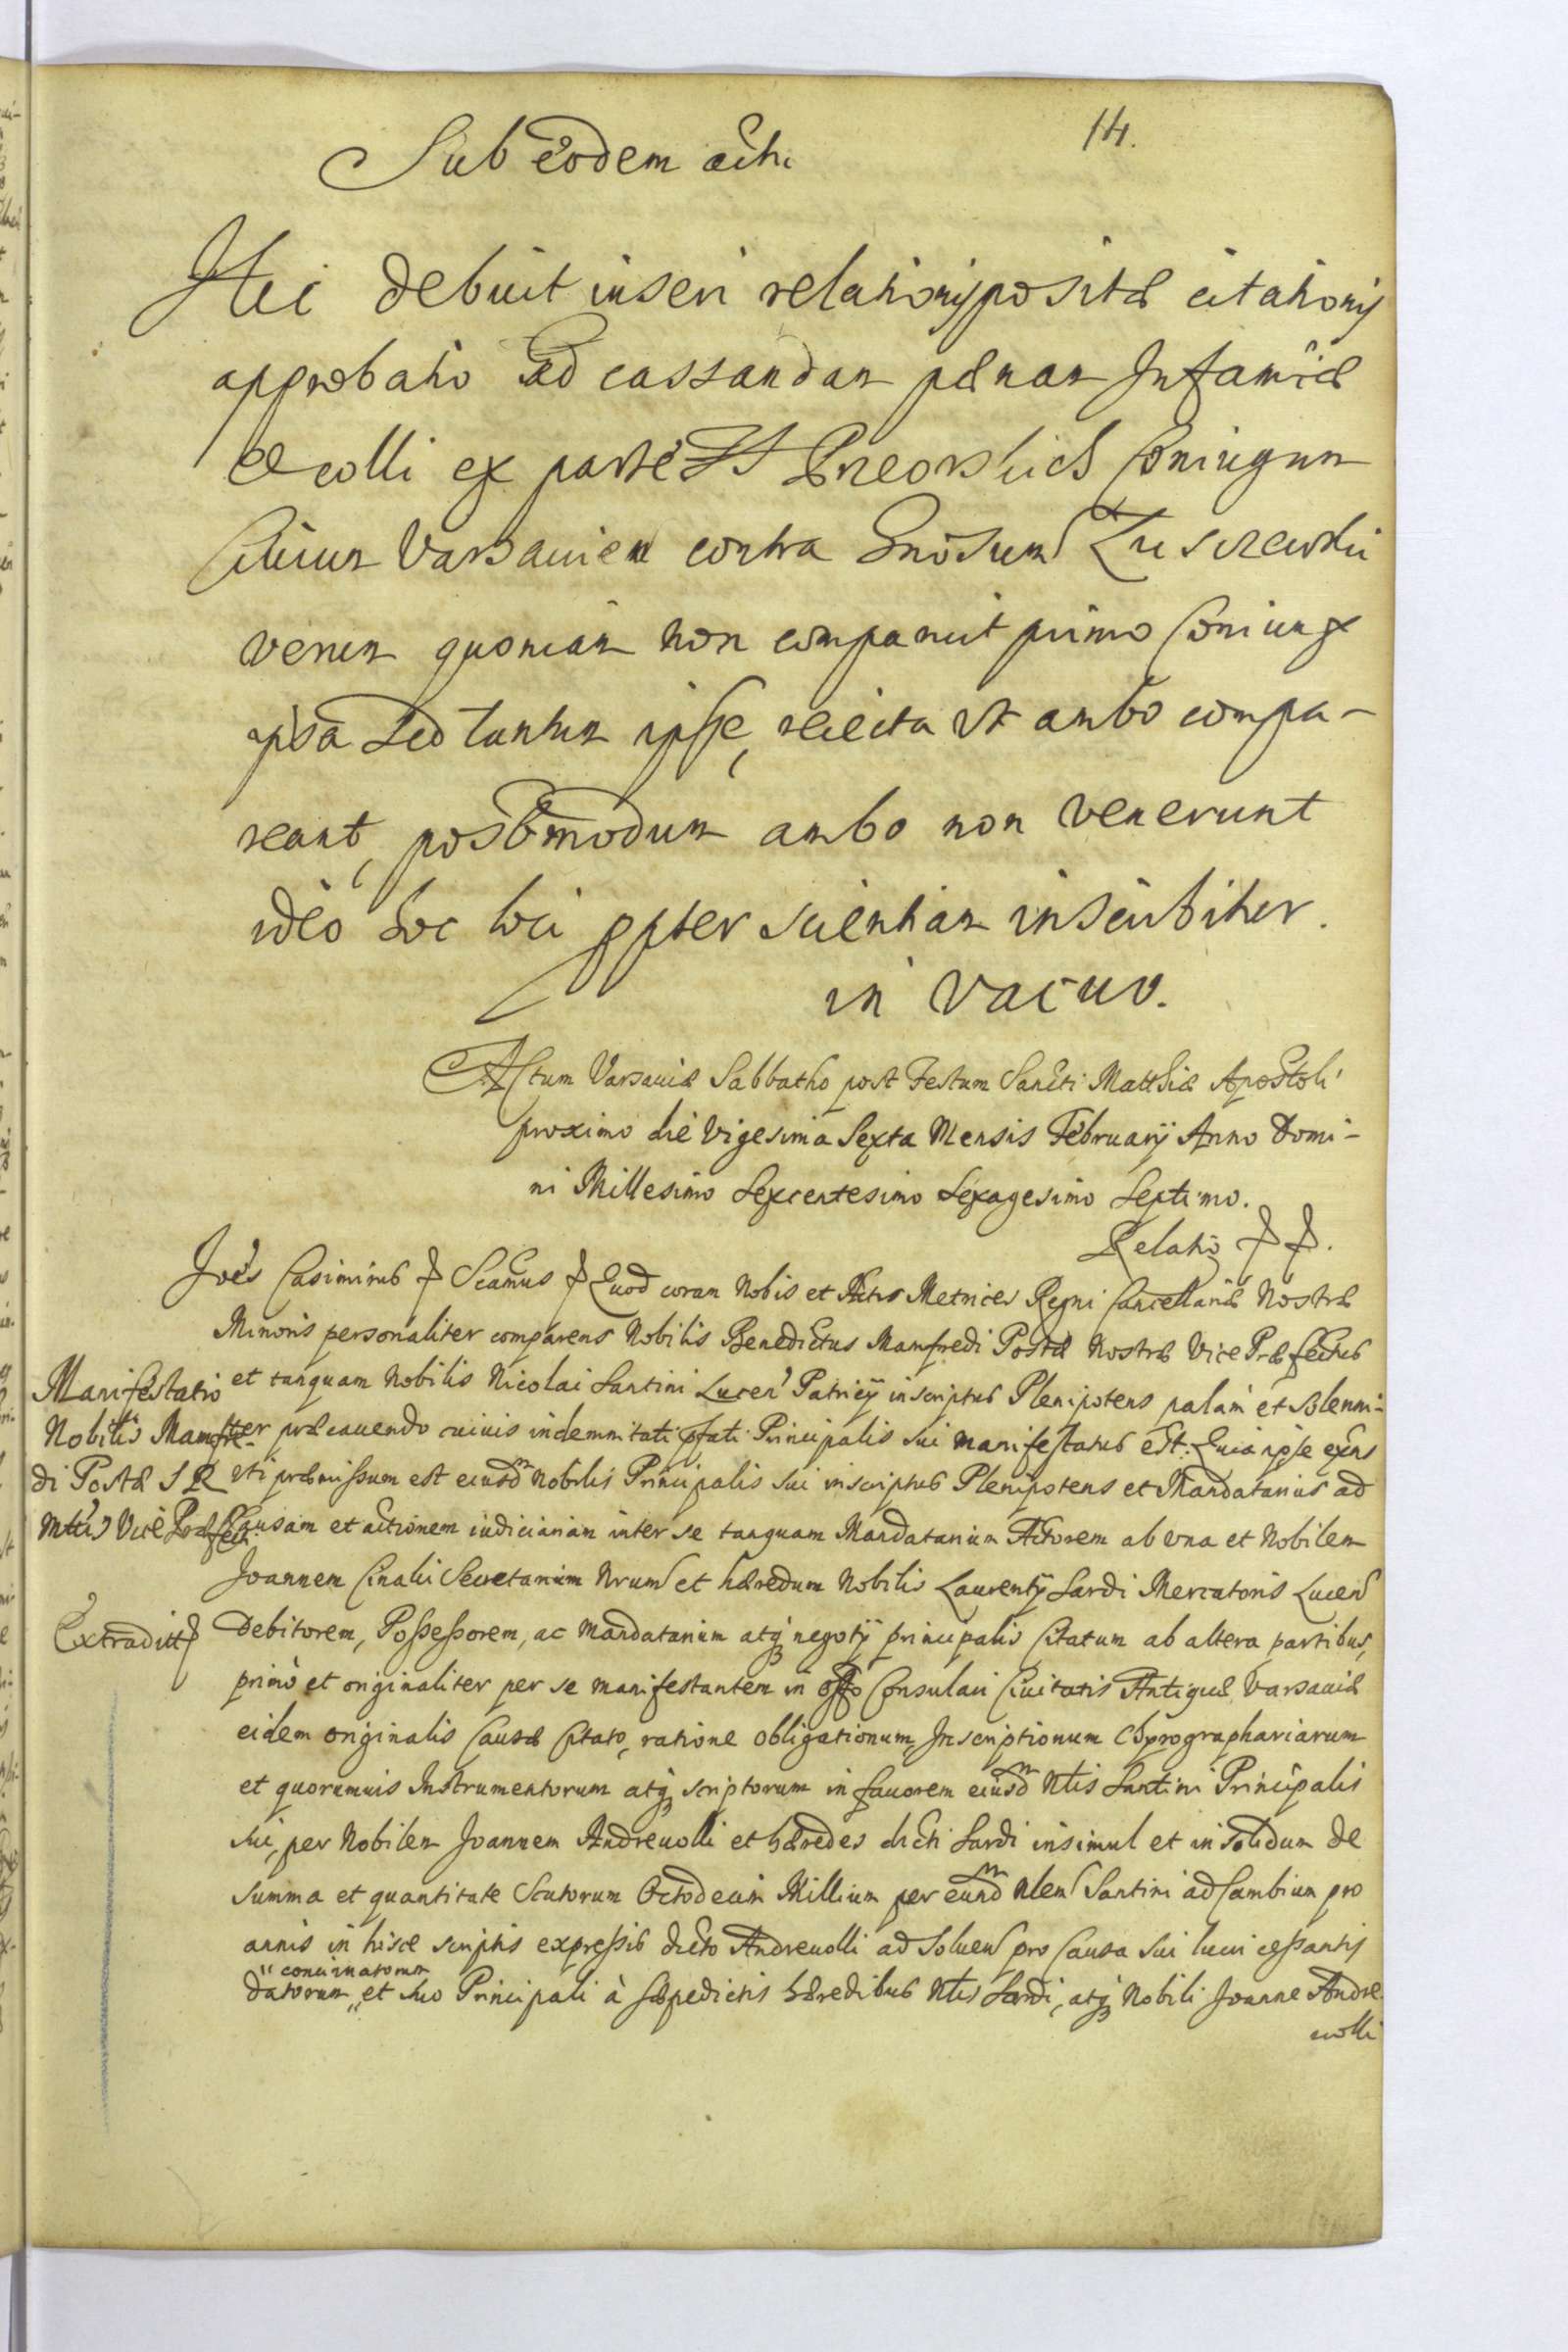 14.
Sub eodem actu
Hic debuit inseri relationis positæ citationis
approbatio ad cassandam pænam Infamiæ
et colli ex parte Coniugum
Civium Varsavien contra Gnosum Łuszczewski
verum quoniam non comparuit primo Coniunx
ipsa sed tantum ipse, reiecta vt ambo compa-
reant, postmodum ambo non venerunt
ideo hoc loci ppter scientiam inscribitur.
in vacuo.
Actum Varsaviæ Sabbatho post Festum Sancti Matthiæ Apostoli
proximo die Vigesima Sexta Mensis Februarij Anno Domi-
ni Millesimo Sexcentesimo Sexagesimo Septimo.
Relatio
Joes Casimirus Scamus Quod coram Nobis et Actis Metrices Regni Cancellariæ Nostræ
Minoris personaliter comparens Nobilis Benedictus Manfredi Postæ Nostræ Vice Præfectus
et tanquam Nobilis Nicolai Santini Lucen Patricij inscriptus Plenipotens palam et solenni-
ter præcavendo cuivis indemnitati pfati Principalis sui manifestatus est: Quia ipse exens
vti præmissum est eiusdm Nobilis Principalis sui inscriptus Plenipotens et Mandatarius ad
Causam et actionem iudiciariam inter se tanquam Mandatarium Actorem ab vna et Nobilem
Manifestatio
Nobilis Manfre-
di Postæ S R
Mttis Vice Præfecti
Joannem Cinalii Secretarium Nrum et hæredum Nobilis Laurentij Sardi Mercatoris Lucen
Extraditt
debitorem, Possessorem, ac Mandatarium atq negotij principalis Citatum ab altera partibus,
primò et originaliter per se manifestantem in offo Consulari Civitatis Antiquæ Varsaviæ
eidem originalis Causæ Citato, ratione obligationum, Inscriptionum Chyrographariarum
et quorumvis Instrumentorum atq scriptorum in favorem eiusdm Nlis Santini Principalis
sui, per Nobilem Joannem Andreuolli et hæredes dicti Sardi insimul et in solidum de
summa et quantitate Scutorum Octodecim Millium per eundm Nlem Santini ad Cambium pro
annis in hisce scriptis expressis dicto Andreuolli ad Solven pro Causa sui lucri cessantis
datorum, et suo Principali à sæpedictis hæredibus Nlis Sardi, atq Nobili Joanne Andre
uolli